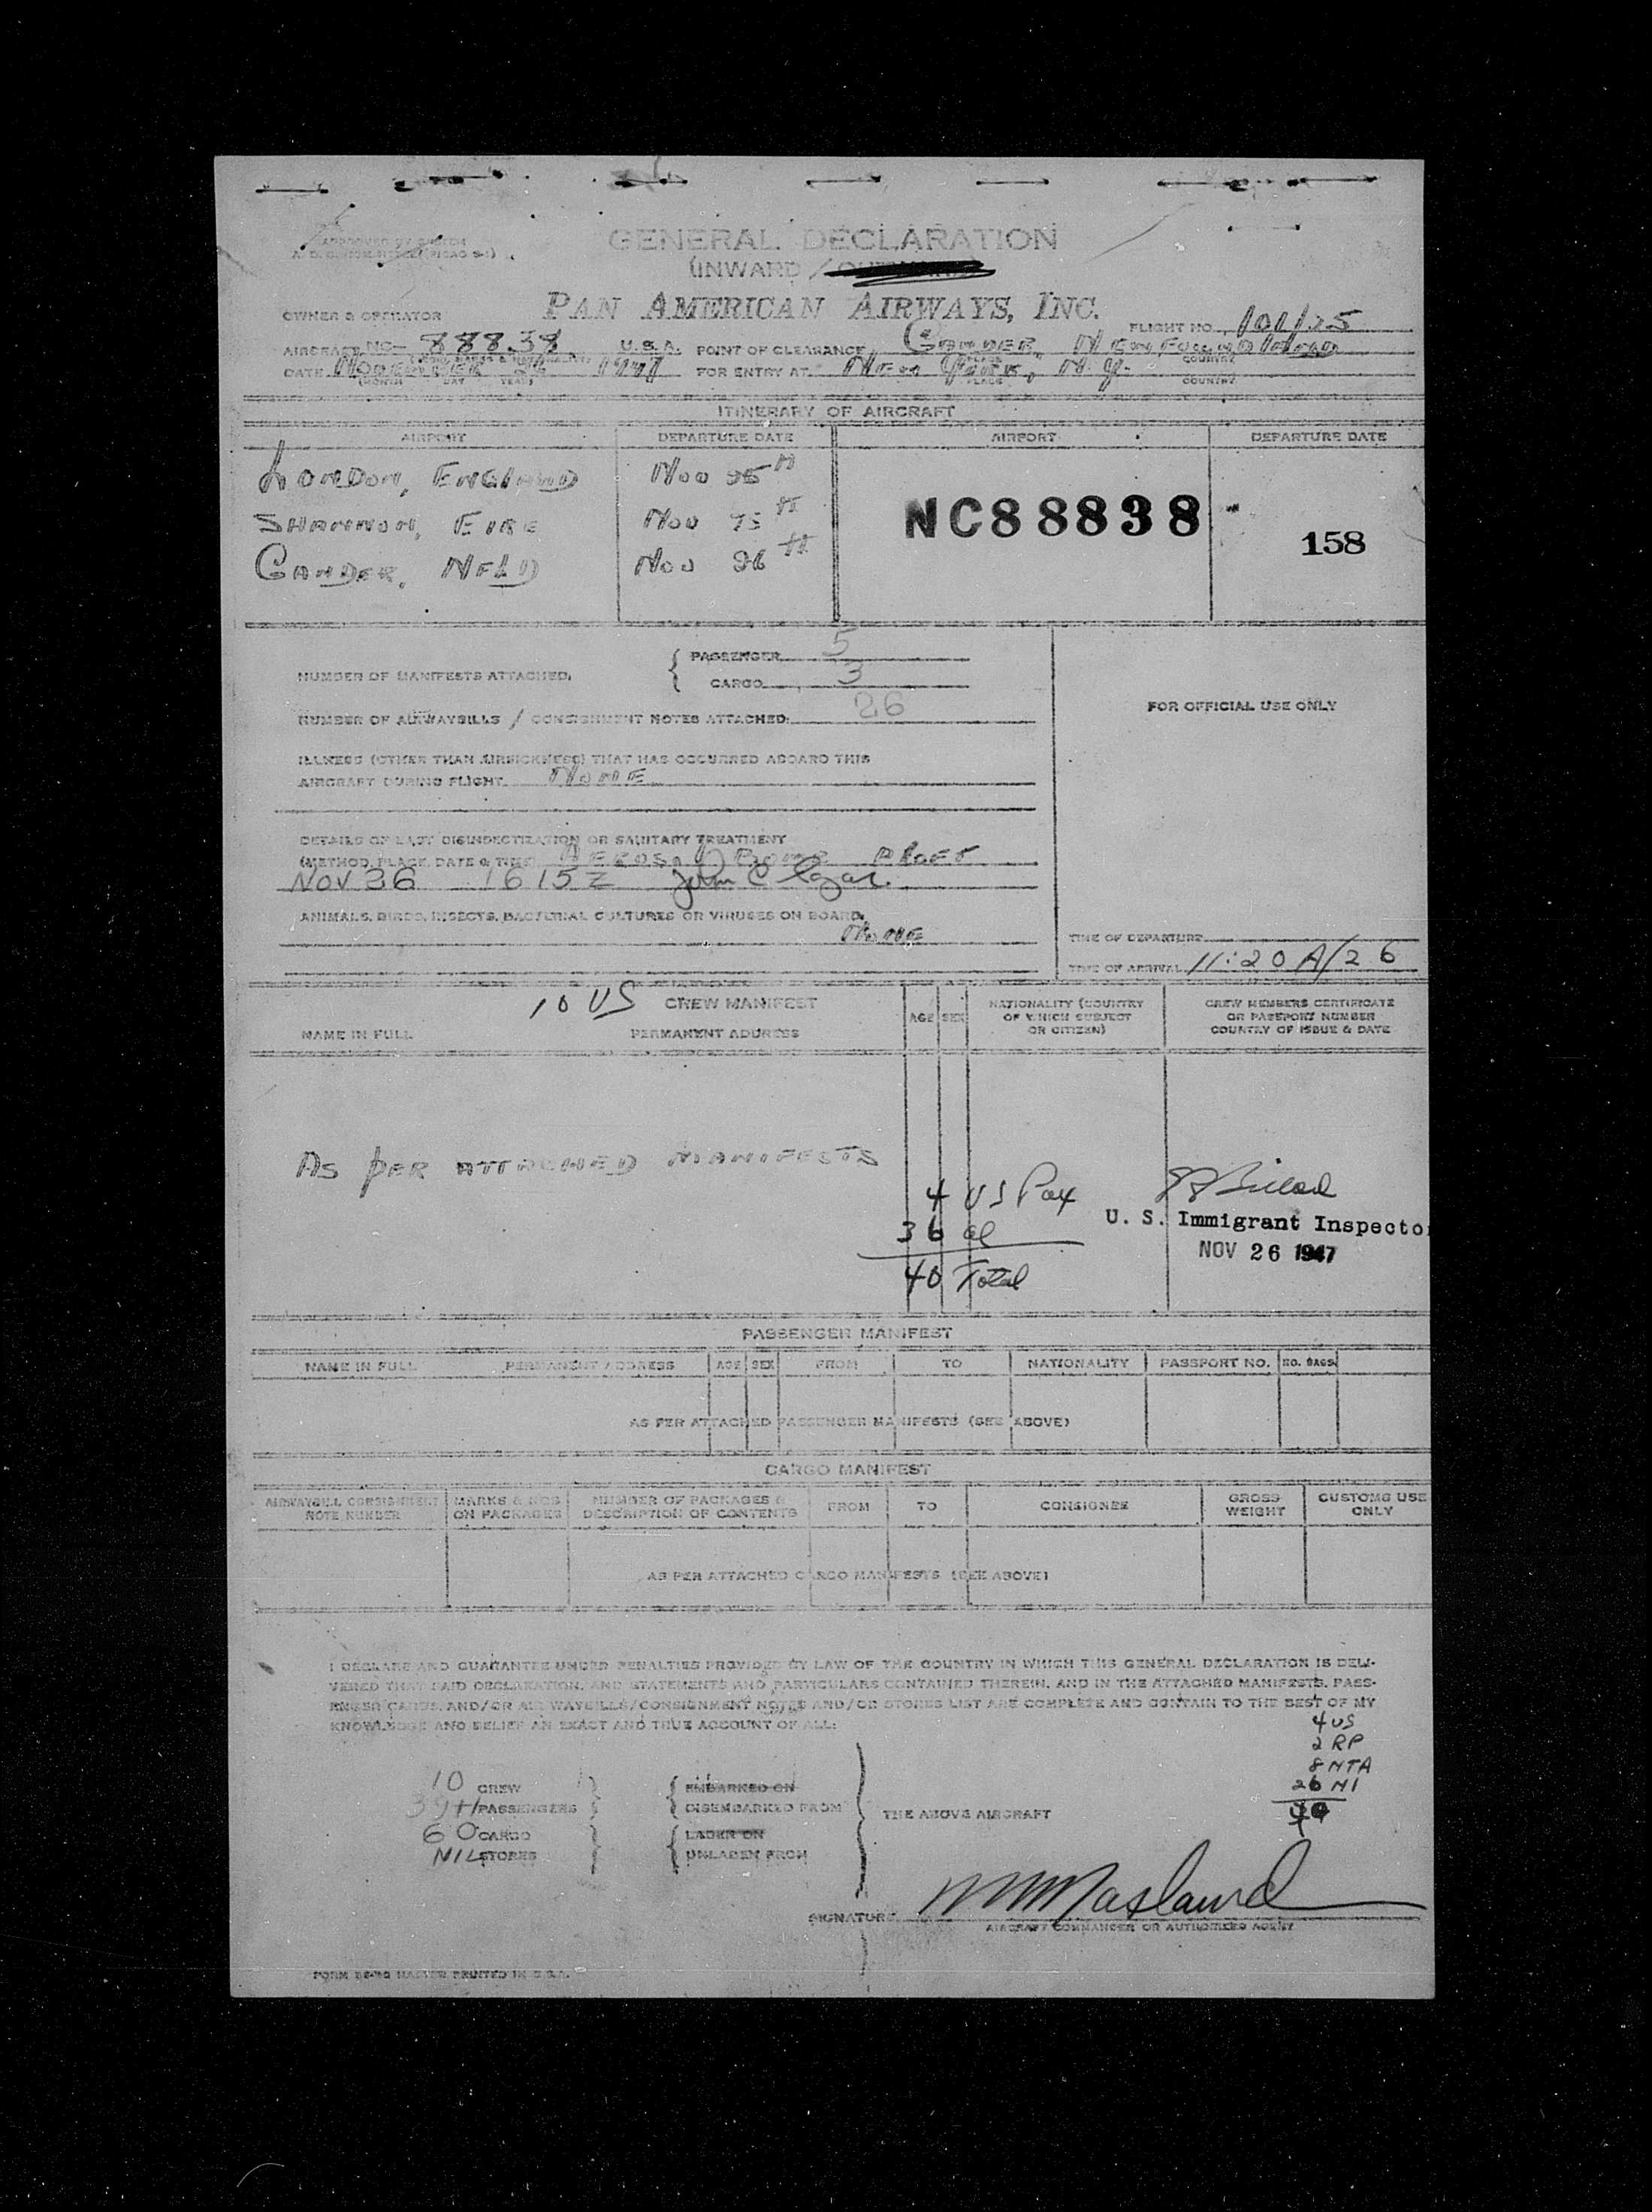 GENERAL DECLARATION
(INWARD /
PAN AMERICAN AIRWAYS, INC.
OWNER & OPERATOR
FLIGHT NO. 101/25
AIRCRAFT NC- 88838 U.S.A. POINT OF CLEARANCE GANDER, NEWFOUNDLAND
DATE NOVEMBER 26 1947 FOR ENTRY AT NEW YORK, N.Y.
(MONTH DAY YEAR) PLACE COUNTRY
ITINERARY OF AIRCRAFT
AIRPORT DEPARTURE DATE AIRPORT DEPARTURE DATE
LONDON, ENGLAND NOV 25TH
SHANNON, EIRE NOV 25TH
GANDER, NFLD NOV 26TH
NC88838
158
NUMBER OF MANIFESTS ATTACHED, { PASSENGER 5
CARGO 3
NUMBER OF AIRWAYBILLS / CONSIGNMENT NOTES ATTACHED: 26
FOR OFFICIAL USE ONLY
ILLNESS (OTHER THAN AIRSICKNESS) THAT HAS OCCURRED ABOARD THIS
AIRCRAFT DURING FLIGHT. NONE
DETAILS OF LAST DISINSECTIZATION OR SANITARY TREATMENT
(METHOD, PLACE, DATE & TIME) AEROSOL BOMB
NOV 26 1615 Z John C
ANIMALS, BIRDS, INSECTS, BACTERIAL CULTURES OR VIRUSES ON BOARD,
NONE
TIME OF DEPARTURE
TIME OF ARRIVAL 11:20 A/26
10 US CREW MANIFEST
NAME IN FULL PERMANENT ADDRESS AGE SEX NATIONALITY (COUNTRY OF WHICH SUBJECT OR CITIZEN) CREW MEMBERS CERTIFICATE OR PASSPORT NUMBER COUNTRY OF ISSUE & DATE
AS PER ATTACHED MANIFESTS
4 US Pax
36 al
40 Total
U. S. Immigrant Inspecto
NOV 26 1947
PASSENGER MANIFEST
NAME IN FULL PERMANENT ADDRESS AGE SEX FROM TO NATIONALITY PASSPORT NO. NO. BAGS
AS PER ATTACHED PASSENGER MANIFESTS (SEE ABOVE)
CARGO MANIFEST
AIRWAYBILL CONSIGNMENT NOTE NUMBER MARKS & NOS ON PACKAGES NUMBER OF PACKAGES & DESCRIPTION OF CONTENTS FROM TO CONSIGNEE GROSS WEIGHT CUSTOMS USE ONLY
AS PER ATTACHED CARGO MANIFESTS (SEE ABOVE)
I DECLARE AND GUARANTEE UNDER PENALTIES PROVIDED BY LAW OF THE COUNTRY IN WHICH THIS GENERAL DECLARATION IS DELI-
VERED THAT SAID DECLARATION, AND STATEMENTS AND PARTICULARS CONTAINED THEREIN, AND IN THE ATTACHED MANIFESTS, PASS-
ENGER CARDS, AND/OR AIR WAYBILLS/CONSIGNMENT NOTES AND/OR STORES LIST ARE COMPLETE AND CONTAIN TO THE BEST OF MY
KNOWLEDGE AND BELIEF AN EXACT AND TRUE ACCOUNT OF ALL:
4 US
2 RP
8 NTA
26 NI
40
10 CREW } { EMBARKED ON
39+1 PASSENGERS DISEMBARKED FROM
THE ABOVE AIRCRAFT
60 CARGO } { LADEN ON
NIL STORES UNLADEN FROM
SIGNATURE
AIRCRAFT COMMANDER OR AUTHORIZED AGENT